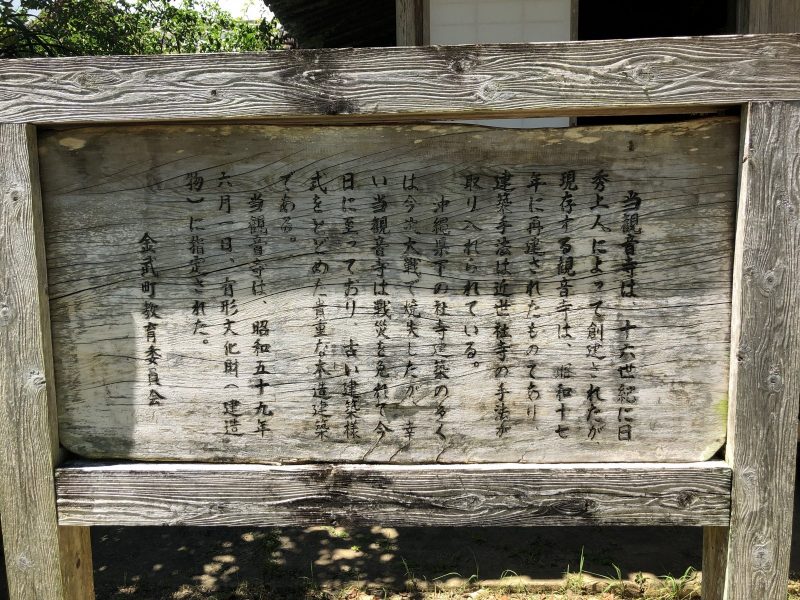 当観音寺は、十六世紀に日
秀上人によって創建されたが
現存する観音寺は、昭和十七
年に再建されたものであり
建築手法は近世社寺の手法が
取り入れられている。
沖縄県下の社寺建築の多く
は今次大戦で焼失したが、幸
い当観音寺は戦災を免れて今
日に至っており、古い建築様
式をとどめた貴重な木造建築
である。
当観音寺は、昭和五十九年
六月一日、有形文化財（建造
物）に指定された。
金武町教育委員会